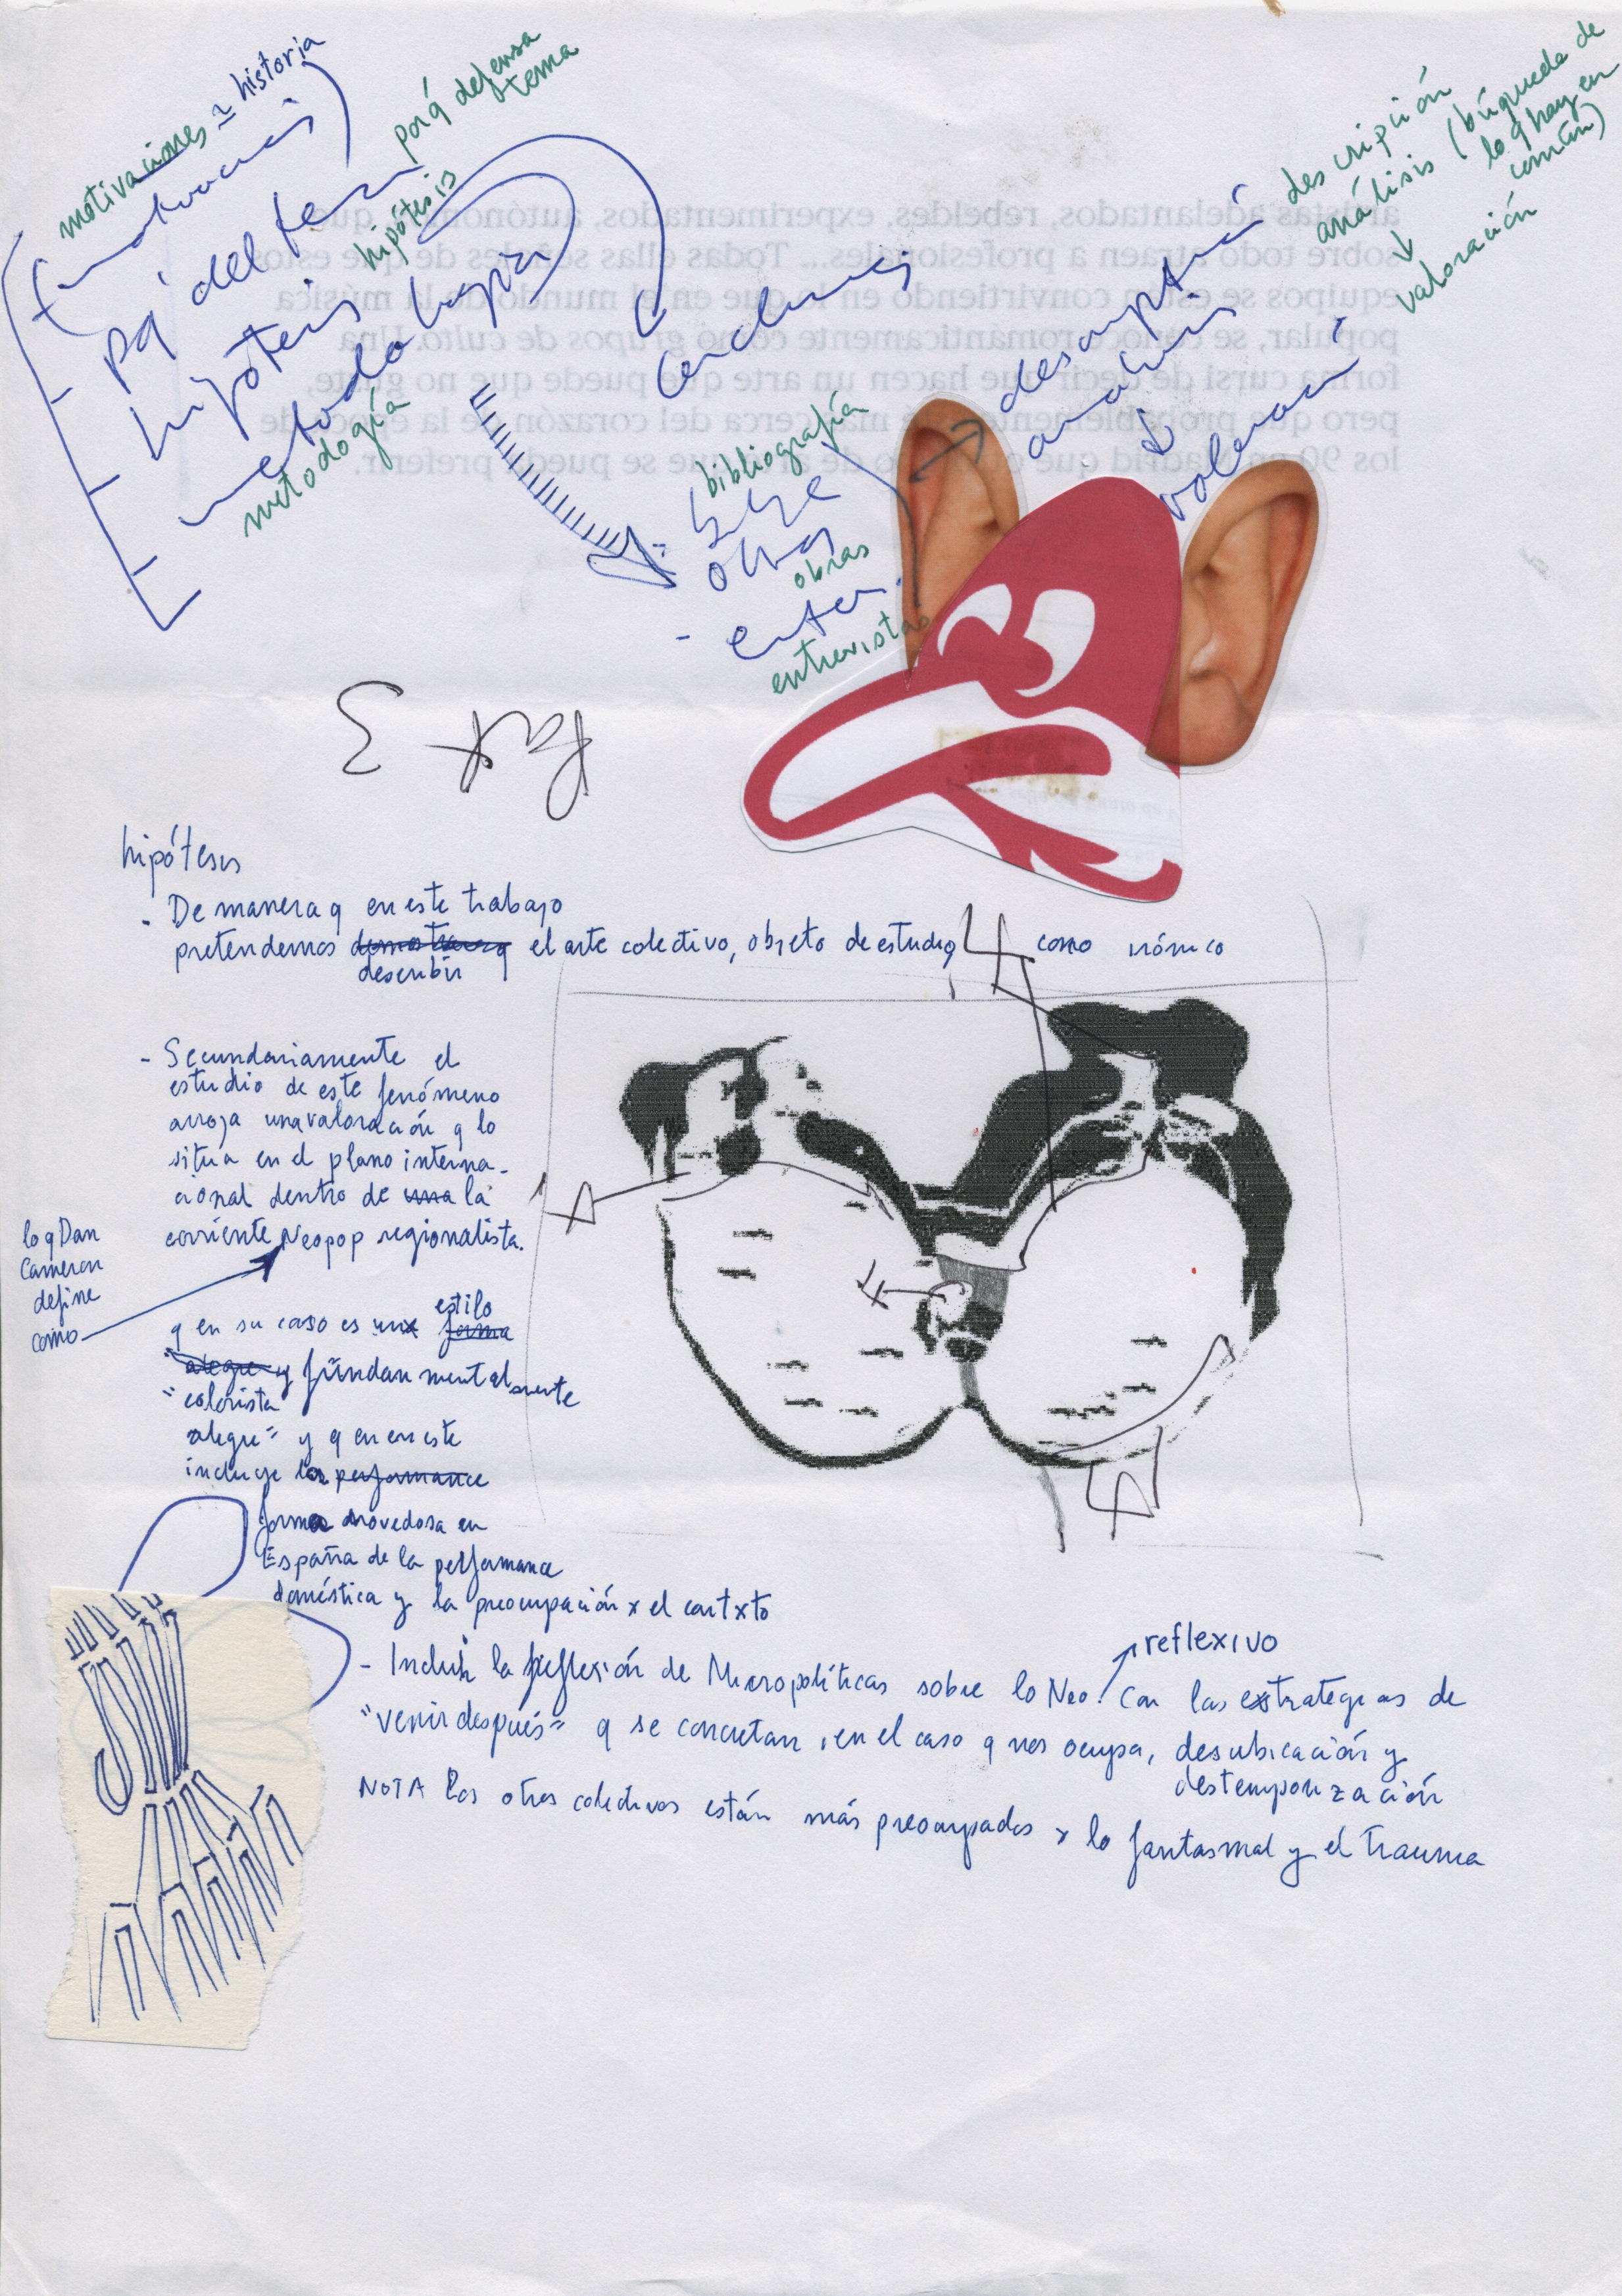 motivaciones ≈ historia
(motivaciones)
pq' def tema
porq defensa
tema
hipótesis
hipótesis
metodología
metodología
conclusiones
bibliografía
obras
obras
- entrev.
entrevistas
descripción
análisis
↓
valoración
descripción
análisis (búsqueda de
lo q hay en
común)
↓
valoración
artistas adelantados, rebeldes, experimentados, autónomos, que
sobre todo atraen a profesionales... Todas ellas señales de que estos
equipos se están convirtiendo en lo que en el mundo de la música
popular, se conoce románticamente como grupos de culto. Una
forma cursi de decir que hacen un arte que puede que no guste,
pero que probablemente más cerca del corazón de la época de
los 90 en Madrid que de arte que se pueda preferir.
Fax 3
hipótesis
- De manera q en este trabajo
pretendemos demostrar q el arte colectivo, objeto de estudio, como irónico
describir
- Secundariamente el
estudio de este fenómeno
arroja una valoración q lo
sitúa en el plano interna-
cional dentro de una la
corriente Neopop regionalista.
lo q Dan
Cameron
define
como
estilo
q en su caso es una forma
"alegre y fundanmentalmente
"colorista
alegre" y q en en este
incluye la performance
forma novedosa en
España de la performance
doméstica y la preocupación x el contxto
reflexivo
- Incluir la reflexión de Micropolíticas sobre lo Neo. Con las extrategias de
"venir después" q se concretan, en el caso q nos ocupa, desubicación y
destemporización
NOTA Los otros colectivos están más preocupados x lo fantasmal y el trauma